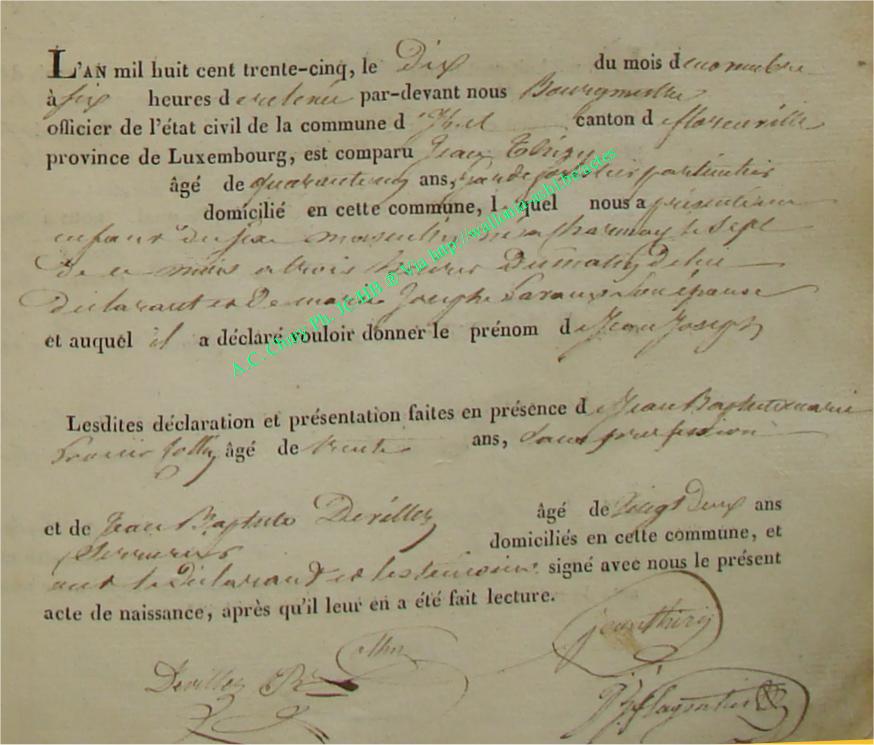 L'AN mil huit cent trente-cinq, le Dix du mois de novembre
à six heures de relevée par-devant nous Bourgmestre
officier de l'état civil de la commune d canton de florenville
province de Luxembourg, est comparu Jean
âgé de quarante ans, garde forestier particulier
domicilié en cette commune, lequel nous a présenté un
enfant du sexe masculin, né a le sept
de ce mois a trois heures Dumatin De lui
declarant et De marie Josephe Son épouse
et auquel il a déclaré vouloir donner le prénom de Jean Joseph
Lesdites déclaration et présentation faites en présence de Jean Baptiste marie
âgé de trente ans, Sans proffession
et de Jean Baptiste Devillez âgé de Vingt Deux ans
Serrurier domiciliés en cette commune, et
ont le Déclarant et les témoins signé avec nous le présent
acte de naissance, après qu'il leur en a été fait lecture.
jean thiry
Devillez
A.C. Chiny Ph. JC-HB ® Via http://wallonia-asbl.be/actes